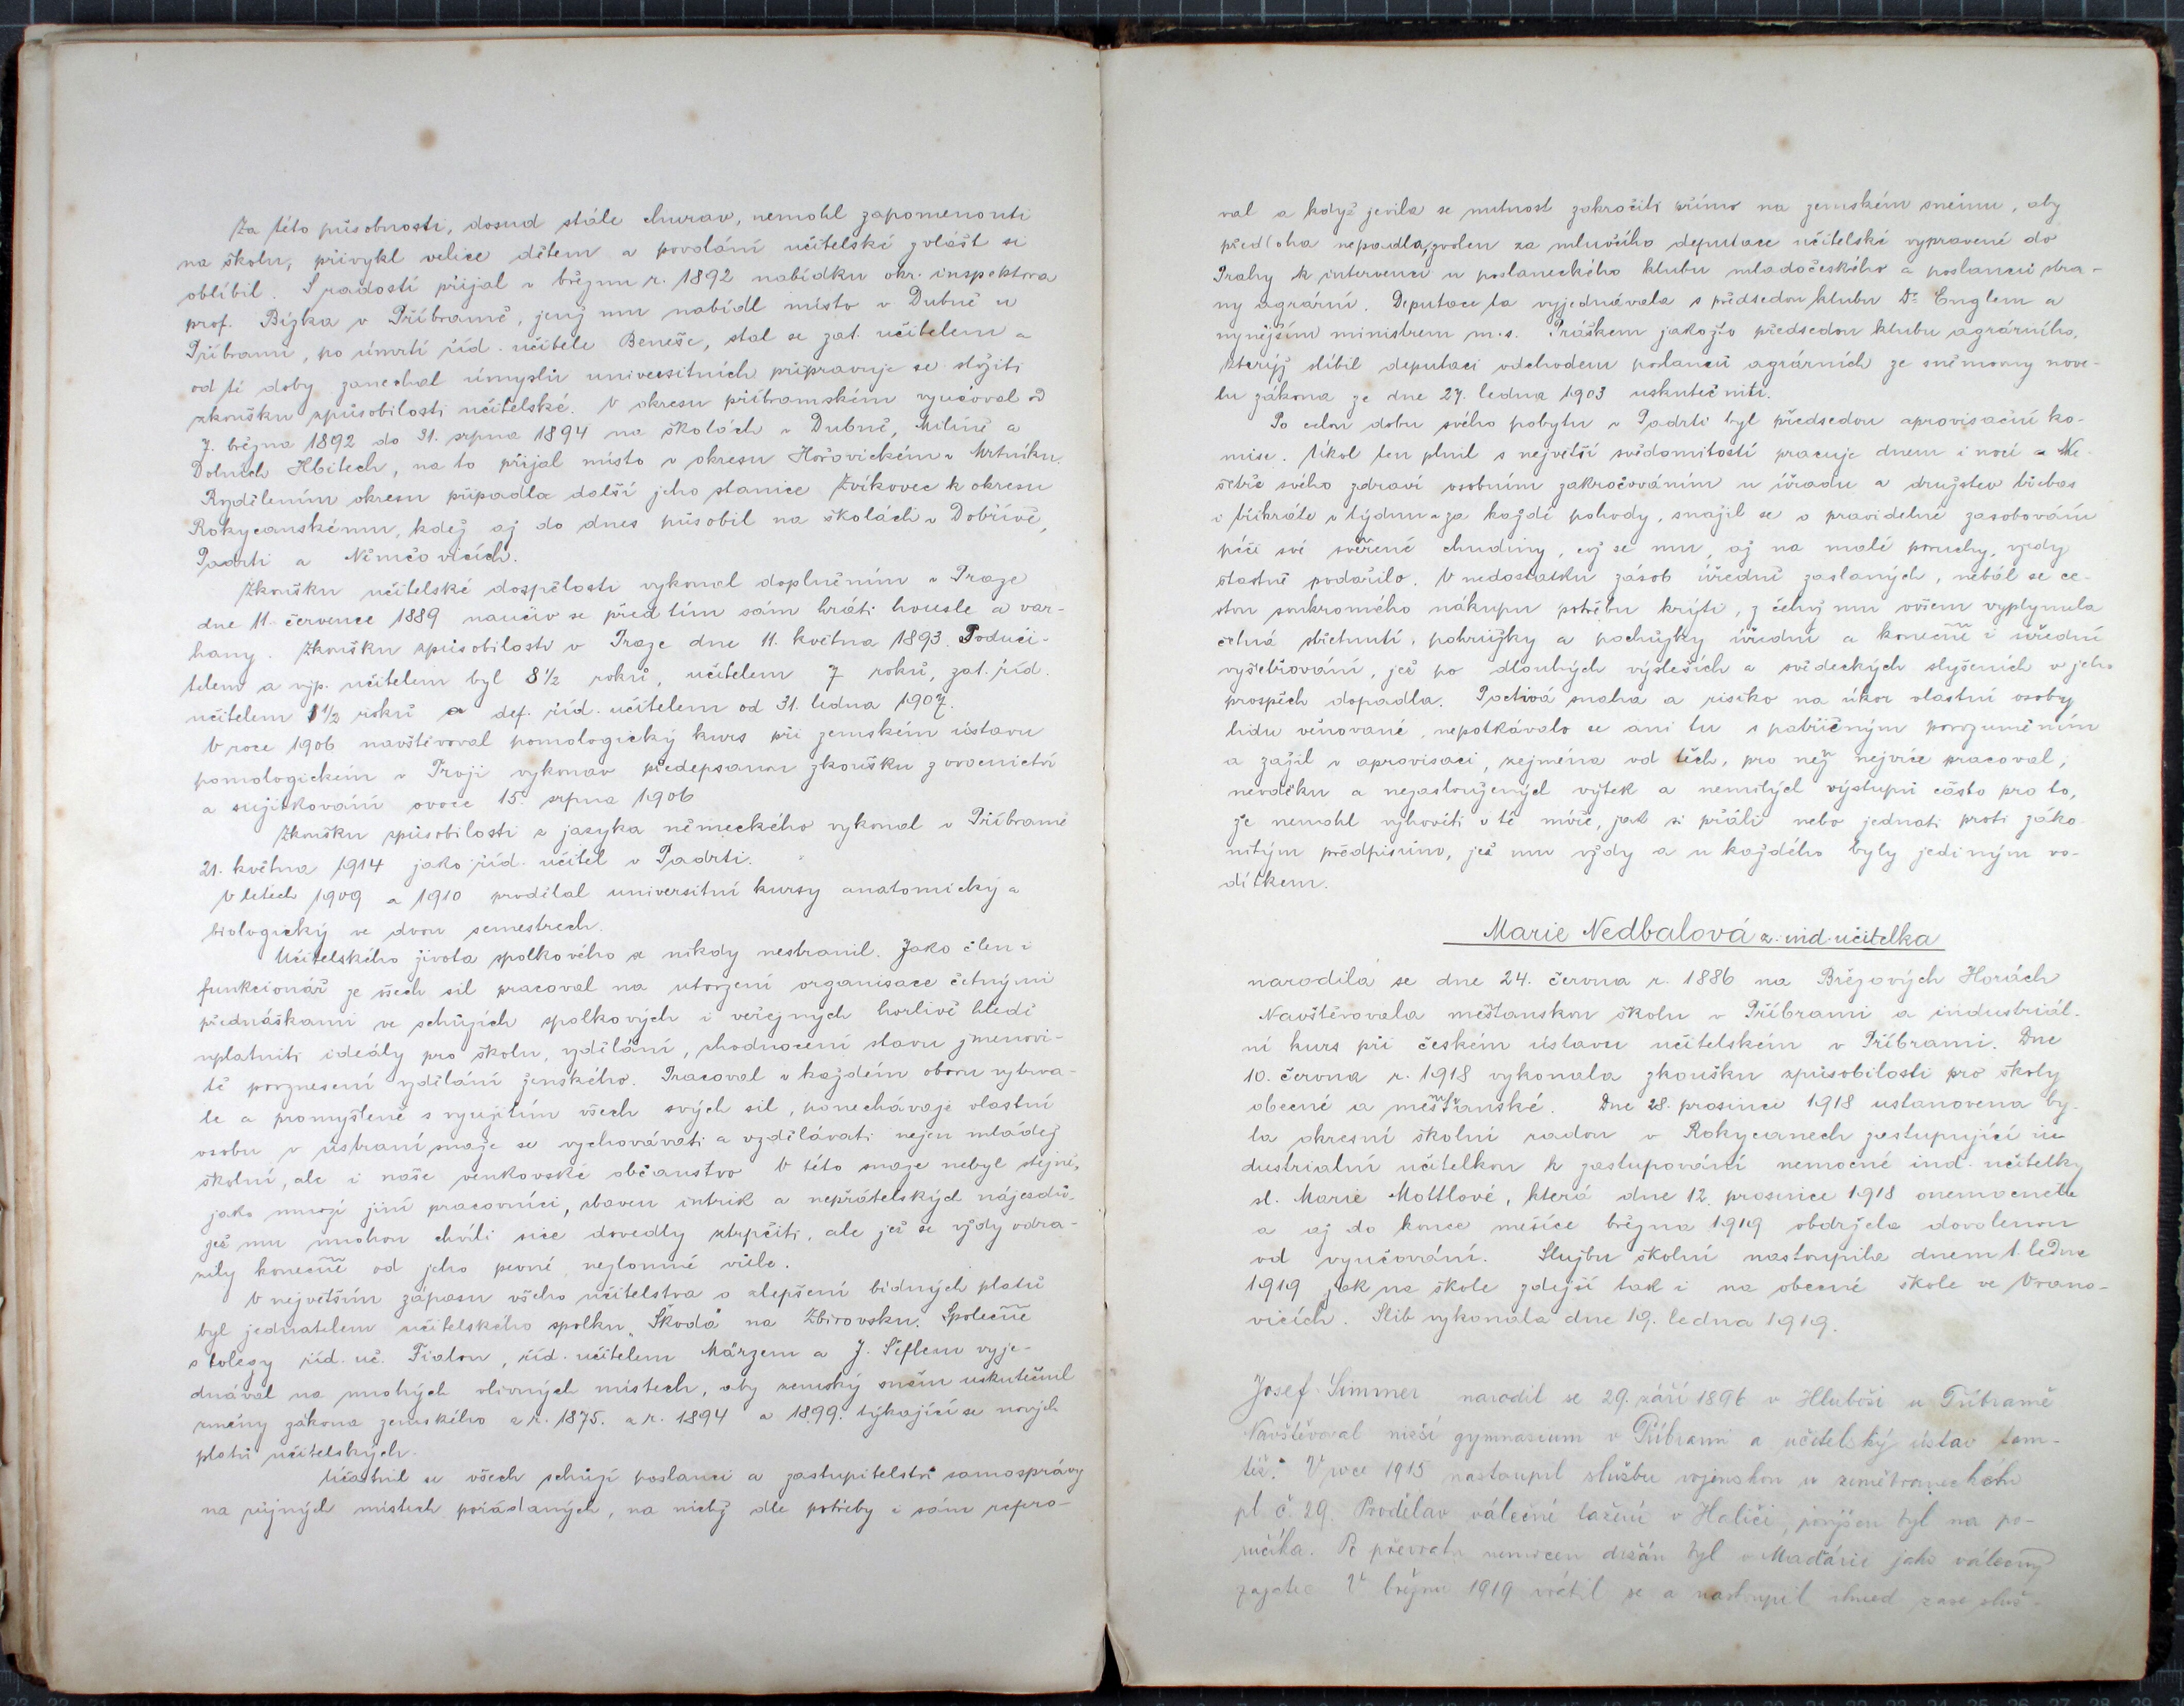 Za této působnosti, dosud stále churav, nemohl zapomenouti
na školu, přivykl velice dětem a povolání učitelské zvlášť si
oblíbil. S radostí přijal v březnu r. 1892 nabídku okr. inspektora
prof. Bízka v Příbramě, jenž mu nabídl místo v Dubně u
Příbrami, po úmrtí říd. učitele Beneše, stal se zat. učitelem a
od té doby zanechal úmyslů universitních připravuje se složiti
zkoušku způsobilosti učitelské. V okresu příbramském vyučoval od
7. března 1892 do 31. srpna 1894 na školách v Dubně, Milíně a
Dolních Hbitech, na to přijal místo v okresu Hořovickém v Mrtníku.
Rozdělením okresu připadla další jeho stanice Zvíkovec k okresu
Rokycanskému, kdež až do dnes působil na školách v Dobřívě,
Padrti a Němčovicích.
Zkoušku učitelské dospělosti vykonal doplněním v Praze
dne 11. července 1889 naučiv se před tím sám hráti housle a var-
hany. Zkoušku způsobilosti v Praze dne 11. května 1893. Poduči-
telem a výp. učitelem byl 8½ roků, učitelem 7 roků, zat. říd.
učitelem 1½ roků a def. říd. učitelem od 31. ledna 1907.
V roce 1906 navštěvoval pomologický kurs při zemském ústavu
pomologickém v Troji vykonav předepsanou zkoušku z ovocnictví
a zužitkování ovoce 15. srpna 1906
Zkoušku způsobilosti z jazyka německého vykonal v Příbramě
21. května 1914 jako říd. učitel v Padrti.
V letech 1909 a 1910 prodělal universitní kursy anatomický a
biologický ve dvou semestrech.
Učitelského života spolkového se nikdy nestranil. Jako člen i
funkcionář ze všech sil pracoval na utvrzení organisace četnými
přednáškami ve schůzích spolkových i veřejných horlivě hledě
uplatniti ideály pro školu, vzdělání, zhodnocení stavu jmenovi-
tě povznesení vzdělání ženského. Pracoval v každém oboru vytrva-
le a promyšleně s využitím všech svých sil, ponechávaje vlastní
osobu v ústraní snaže se vychovávati a vzdělávati nejen mládež
školní, ale i naše venkovské občanstvo V této snaze nebyl stejně,
jako mnozí jiní pracovníci, zbaven intrik a nepřátelských nájezdů,
jež mu mnohou chvíli sice dovedly ztrpčiti, ale jež se vždy odra-
zily konečně od jeho pevné, nezlomné vůle.
V největším zápasu všeho učitelstva o zlepšení bídných platů
byl jednatelem učitelského spolku „Škoda" na Zbirovsku. Společně
s kolegy říd. uč. Fialou, říd. učitelem Märzem a J. Šeflem vyje-
dnával na mnohých vlivných místech, aby zemský sněm uskutečnil
změny zákona zemského z r. 1875. z r. 1894 a 1899. týkající se nových
platů učitelských.
Účastnil se všech schůzí poslanců a zastupitelství samosprávy
na různých místech pořádaných, na nichž dle potřeby i sám refero-
val a když jevila se nutnost zakročiti přímo na zemském sněmu, aby
předloha nepadla, zvolen za mluvčího deputace učitelské vypravené do
Prahy k intervenci u poslaneckého klubu mladočeského a poslanců stra-
ny agrární. Deputace ta vyjednávala s předsedou klubu Dr. Englem a
nynějším ministrem m.s. Práškem jakožto předsedou klubu agrárního,
kterýž slíbil deputaci odchodem poslanců agrárních ze sněmovny nove-
lu zákona ze dne 27. ledna 1903 uskutečniti.
Po celou dobu svého pobytu v Padrti byl předsedou aprovisační ko-
mise. Úkol ten plnil s největší svědomitostí pracuje dnem i nocí a Ne-
šetře svého zdraví osobním zakročováním u úřadu a družstev třebas
i třikráte v týdnu a za každé pohody, snažil se o pravidelné zasobování
péči své svěřené chudiny, což se mu, až na malé poruchy, vždy
šťastně podařilo. V nedostatku zásob úředně zaslaných, nebál se ce-
stou soukromého nákupu potřebu krýti, z čehož mu ovšem vyplynula
četná střetnutí, pohrůžky a pochůzky úřední a konečně i úřední
vyšetřování, jež po dlouhých výsleších a svědeckých slyšeních v jeho
prospěch dopadla. Poctivá snaha a risiko na úkor vlastní osoby
lidu věnované, nepotkávalo se ani tu s patřičným porozuměním
a zažil v aprovisaci, zejména od těch, pro něž nejvíce pracoval,
nevděku a nezasloužených výtek a nemilých výstupů často pro to,
že nemohl vyhověti v té míře, jak si přáli nebo jednati proti záko-
nitým předpisům, jež mu vždy a u každého byly jediným vo-
dítkem.
Marie Nedbalová z. ind. učitelka
narodila se dne 24. června r. 1886 na Březových Horách
Navštěvovala měšťanskou školu v Příbrami a industriál-
ní kurs při českém ústavu učitelském v Příbrami. Dne
10. června r. 1918 vykonala zkoušku způsobilosti pro školy
obecné a měšťanské. Dne 28. prosince 1918 ustanovena by-
la okresní školní radou v Rokycanech zastupující in-
dustrialní učitelkou k zastupování nemocné ind. učitelky
sl. Marie Mottlové, která dne 12. prosince 1918 onemocněla
a až do konce měsíce března 1919 obdržela dovolenou
od vyučování. Službu školní nastoupila dnem 1. ledna
1919 jak na škole zdejší tak i na obecné škole ve Vrano-
vicích. Slib vykonala dne 19. ledna 1919.
Josef Simmer narodil se 29. září 1896 v Hluboši u Příbramě
Navštěvoval nižší gymnaseum v Příbrami a učitelský ústav tam-
též. V roce 1915 nastoupil službu vojenskou u zeměbraneckého
pl. č. 29. Prodělav válečné tažení v Haliči, povýšen byl na po-
ručíka. Po převratu nemocen držán byl v Maďárii jako válečný
zajatec V březnu 1919 vrátil se a nastoupil ihned zase služ-